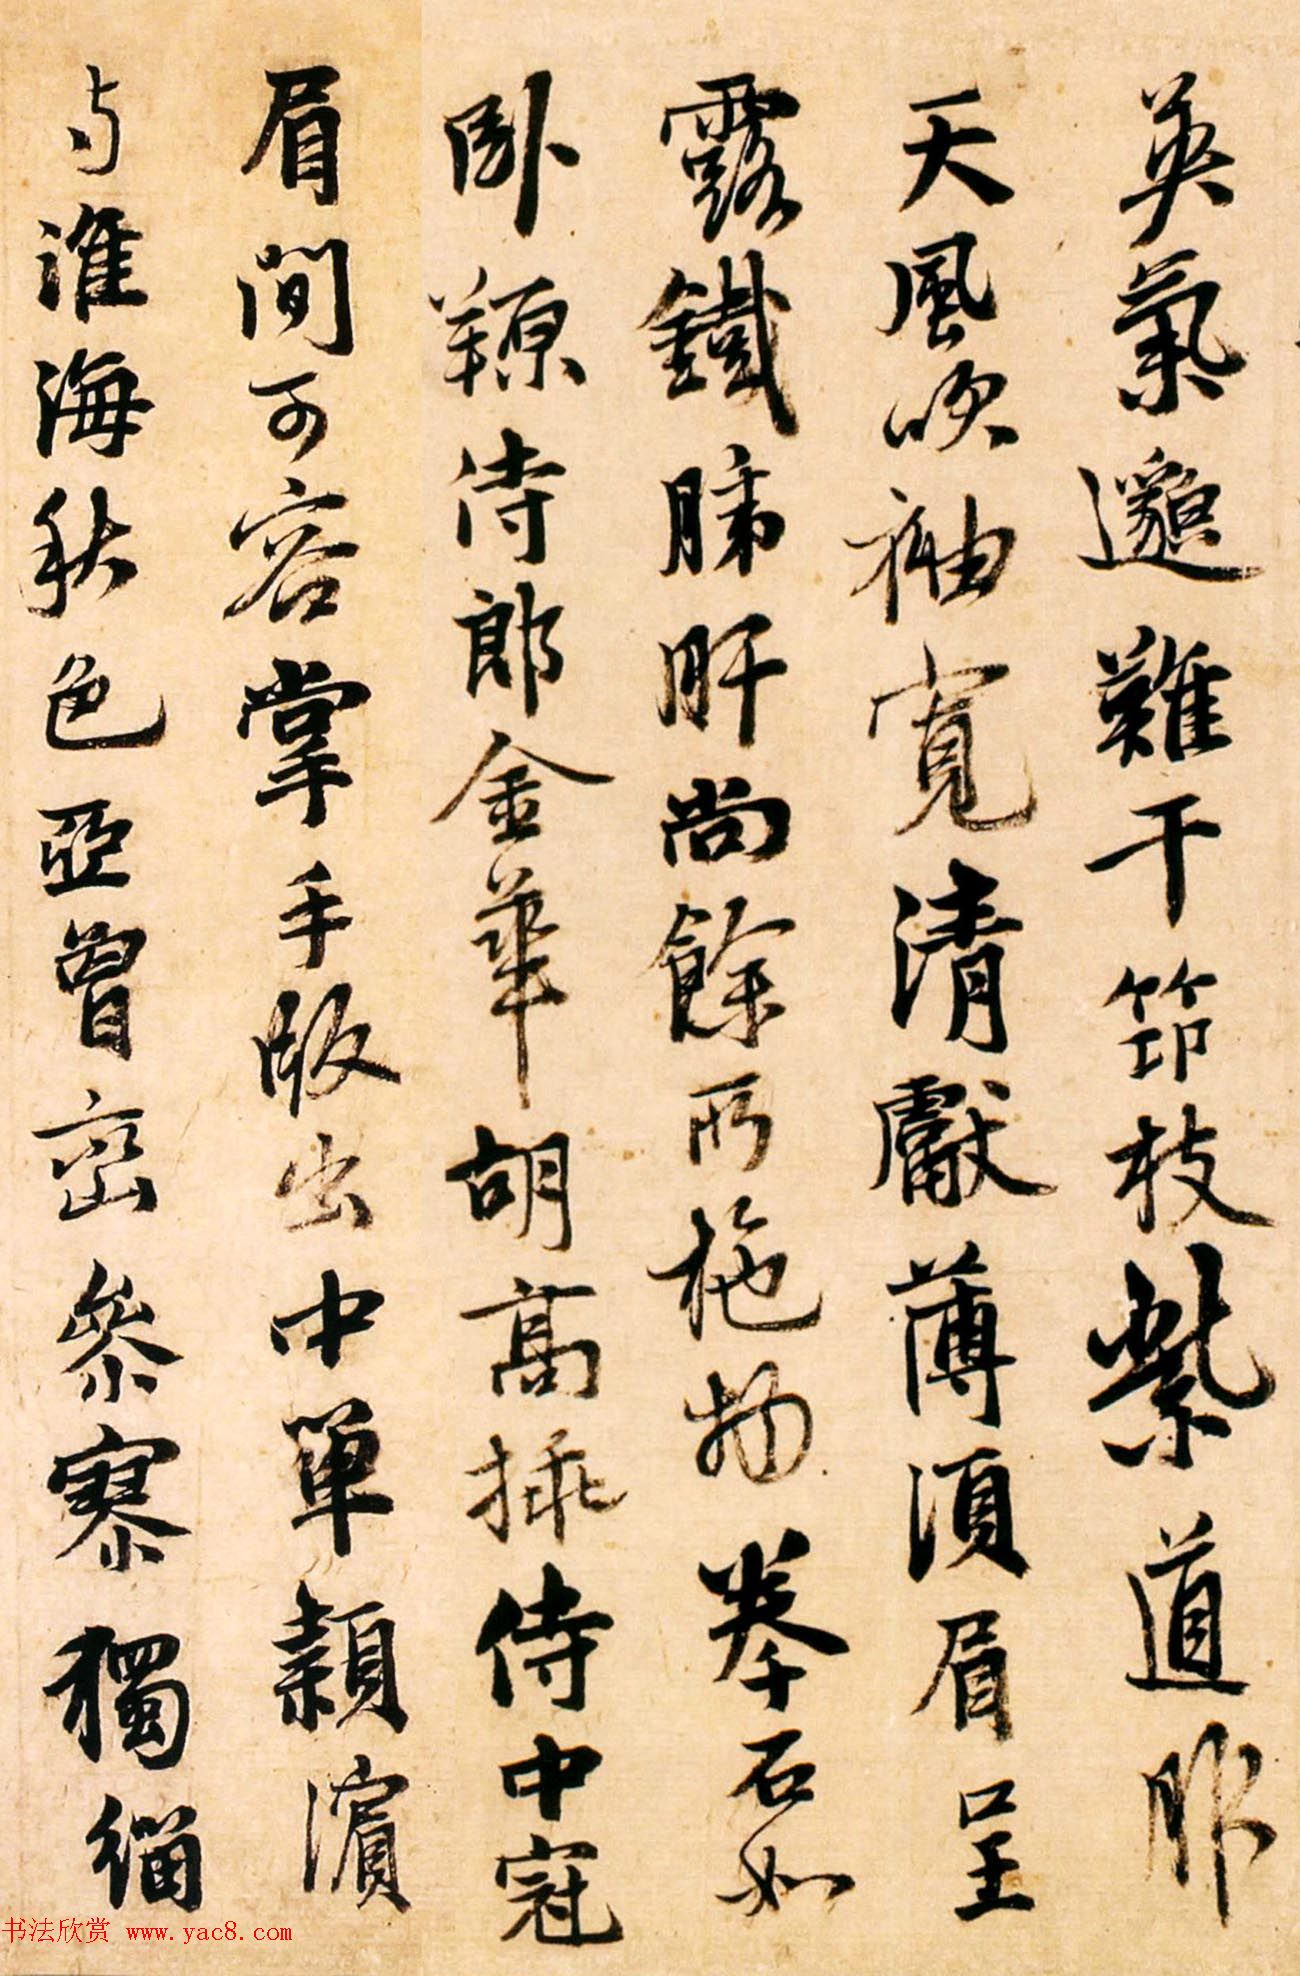 英氣邈難干筇枝紫道服
天風吹袖寬清獻薄須眉呈
露鐵肺肝尚餘所拖物拳石如
臥羱侍郎金華胡高插侍中冠
眉間可容掌手版出中單潁濱
与淮海秋色亞曾巒參寥獨緇
书法欣赏 www.yac8.com